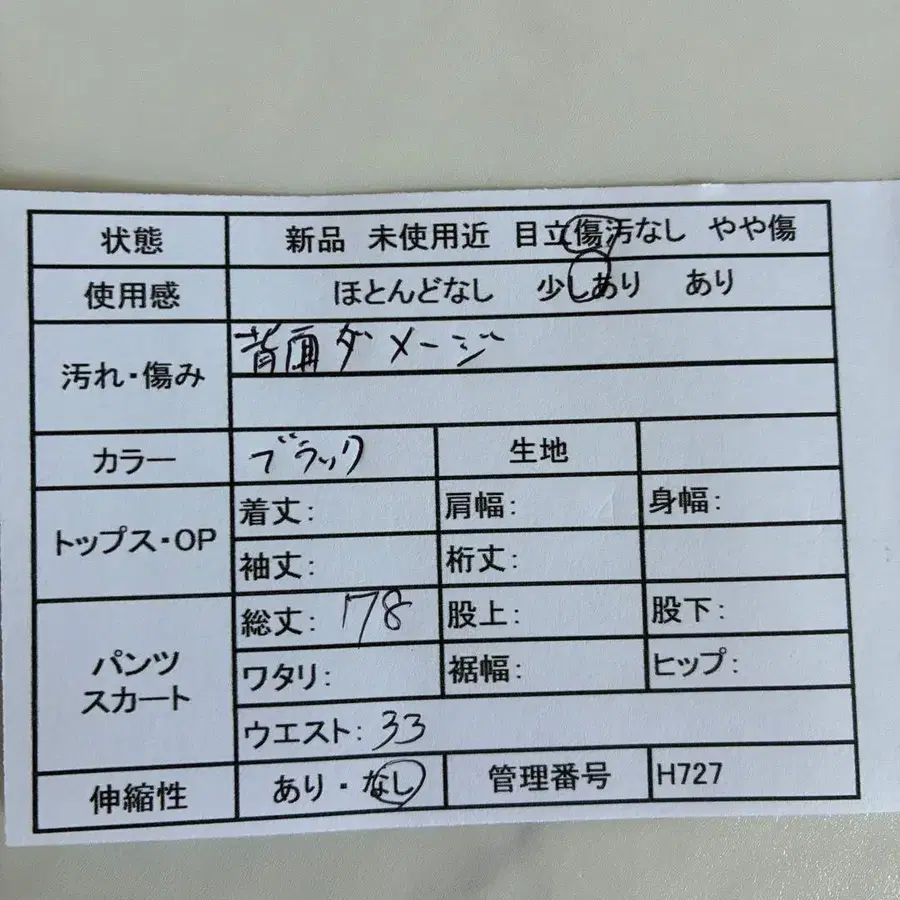 状態 新品 未使用近 目立傷汚なし やや傷
使用感 ほとんどなし 少しあり あり
汚れ・傷み 背面ダメージ
カラー ブラック 生地
トップス・OP 着丈: 肩幅: 身幅:
袖丈: 裄丈:
パンツ スカート 総丈: 178 股上: 股下:
ワタリ: 裾幅: ヒップ:
ウエスト: 33
伸縮性 あり・なし 管理番号 H727